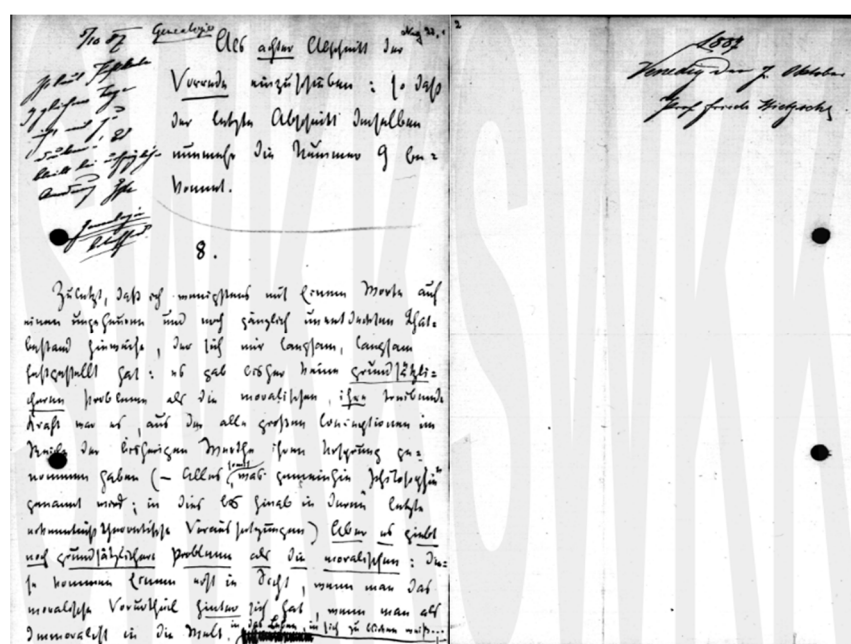 5/10 87 Genealogie
Als achter Abschnitt der
Vorrede einzuschieben: so daß
der letzte Abschnitt derselben
nunmehr die Nummer 9 be-
kommt.
8.
Zuletzt, daß ich wenigstens mit Einem Worte auf
einen ungeheuren und noch gänzlich unentdeckten That-
bestand hinweise, der sich mir langsam, langsam
festgestellt hat: es gab bisher keine grundsätzli-
cheren Probleme als die moralischen, ihre treibende
Kraft war es, aus der alle großen Conceptionen im
Reiche der bisherigen Werthe ihren Ursprung ge-
nommen haben (— Alles somit, was gemeinhin „Philosophie“
genannt wird; und dies bis hinab in deren letzte
erkenntnißtheoretische Voraussetzungen) Aber es giebt
noch grundsätzlichere Probleme als die moralischen: die-
se kommen Einem erst in Sicht, wenn man das
moralische Vorurtheil hinter sich hat, wenn man als
Immoralist in die Welt, in das Leben, in sich zu blicken weiß...
2
1887
Venedig den 7. Oktober
Prof Friedr Nietzsche
SWKK SWKK